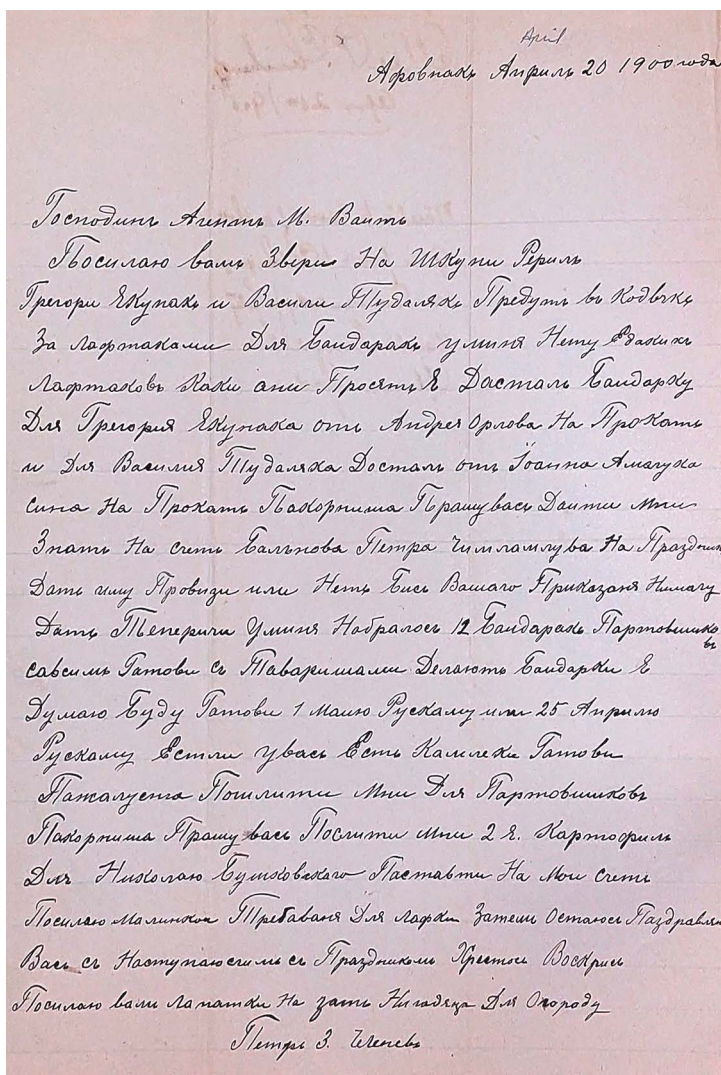 April
Афовнакъ Априль 20 1900 года
Господинъ Агентъ М. Ваитъ
Посилаю вамъ Звери На Шкуни Рериль
Грегори Якунакъ и Васили Тудалякъ Предутъ въ Кодъякъ
За лафтаками Для Баидаракъ уминя Нету Едакихъ
лафтаковъ каки ани Просятъ Я Дасталъ Баидарку
Для Грегория Якунака отъ Андрея Орлова На Прокатъ
и Для Василия Тудаляка Досталъ отъ Iоанна Амачука
сина На Прокатъ Пакорниша Прашу васъ Даити мни
Знать На счетъ Балънова Петра На Праздник
Дать иму Провизи или Нетъ Бисъ Вашаго Приказаня Нимагу
Дать Теперичи Уминя Набралосъ 12 Баидаракъ Партовшиковъ
савсимъ Гатови съ Таваришами Делаютъ Баидарки Я
Думаю Буду Гатови 1 Маию Рускаму или 25 Априлю
Рускаму Естли увасъ Есть Камлеки Гатови
Пажалуста Пошлити Мни Для Партовшиковъ
Пакорниша Прашу васъ Послити мни 2 Я. Картофиль
Для Николаю Бушковскаго Паставти На мои счетъ
Посилаю малинкои Требаваня Для лафки Затемъ Остаюсь Паздравляю
Васъ съ Наступаюсчимъ съ Праздникомъ Христосъ Воскрисъ
Посилаю вами лапатки На затъ Нигодяца Для Огороду
Петръ З.